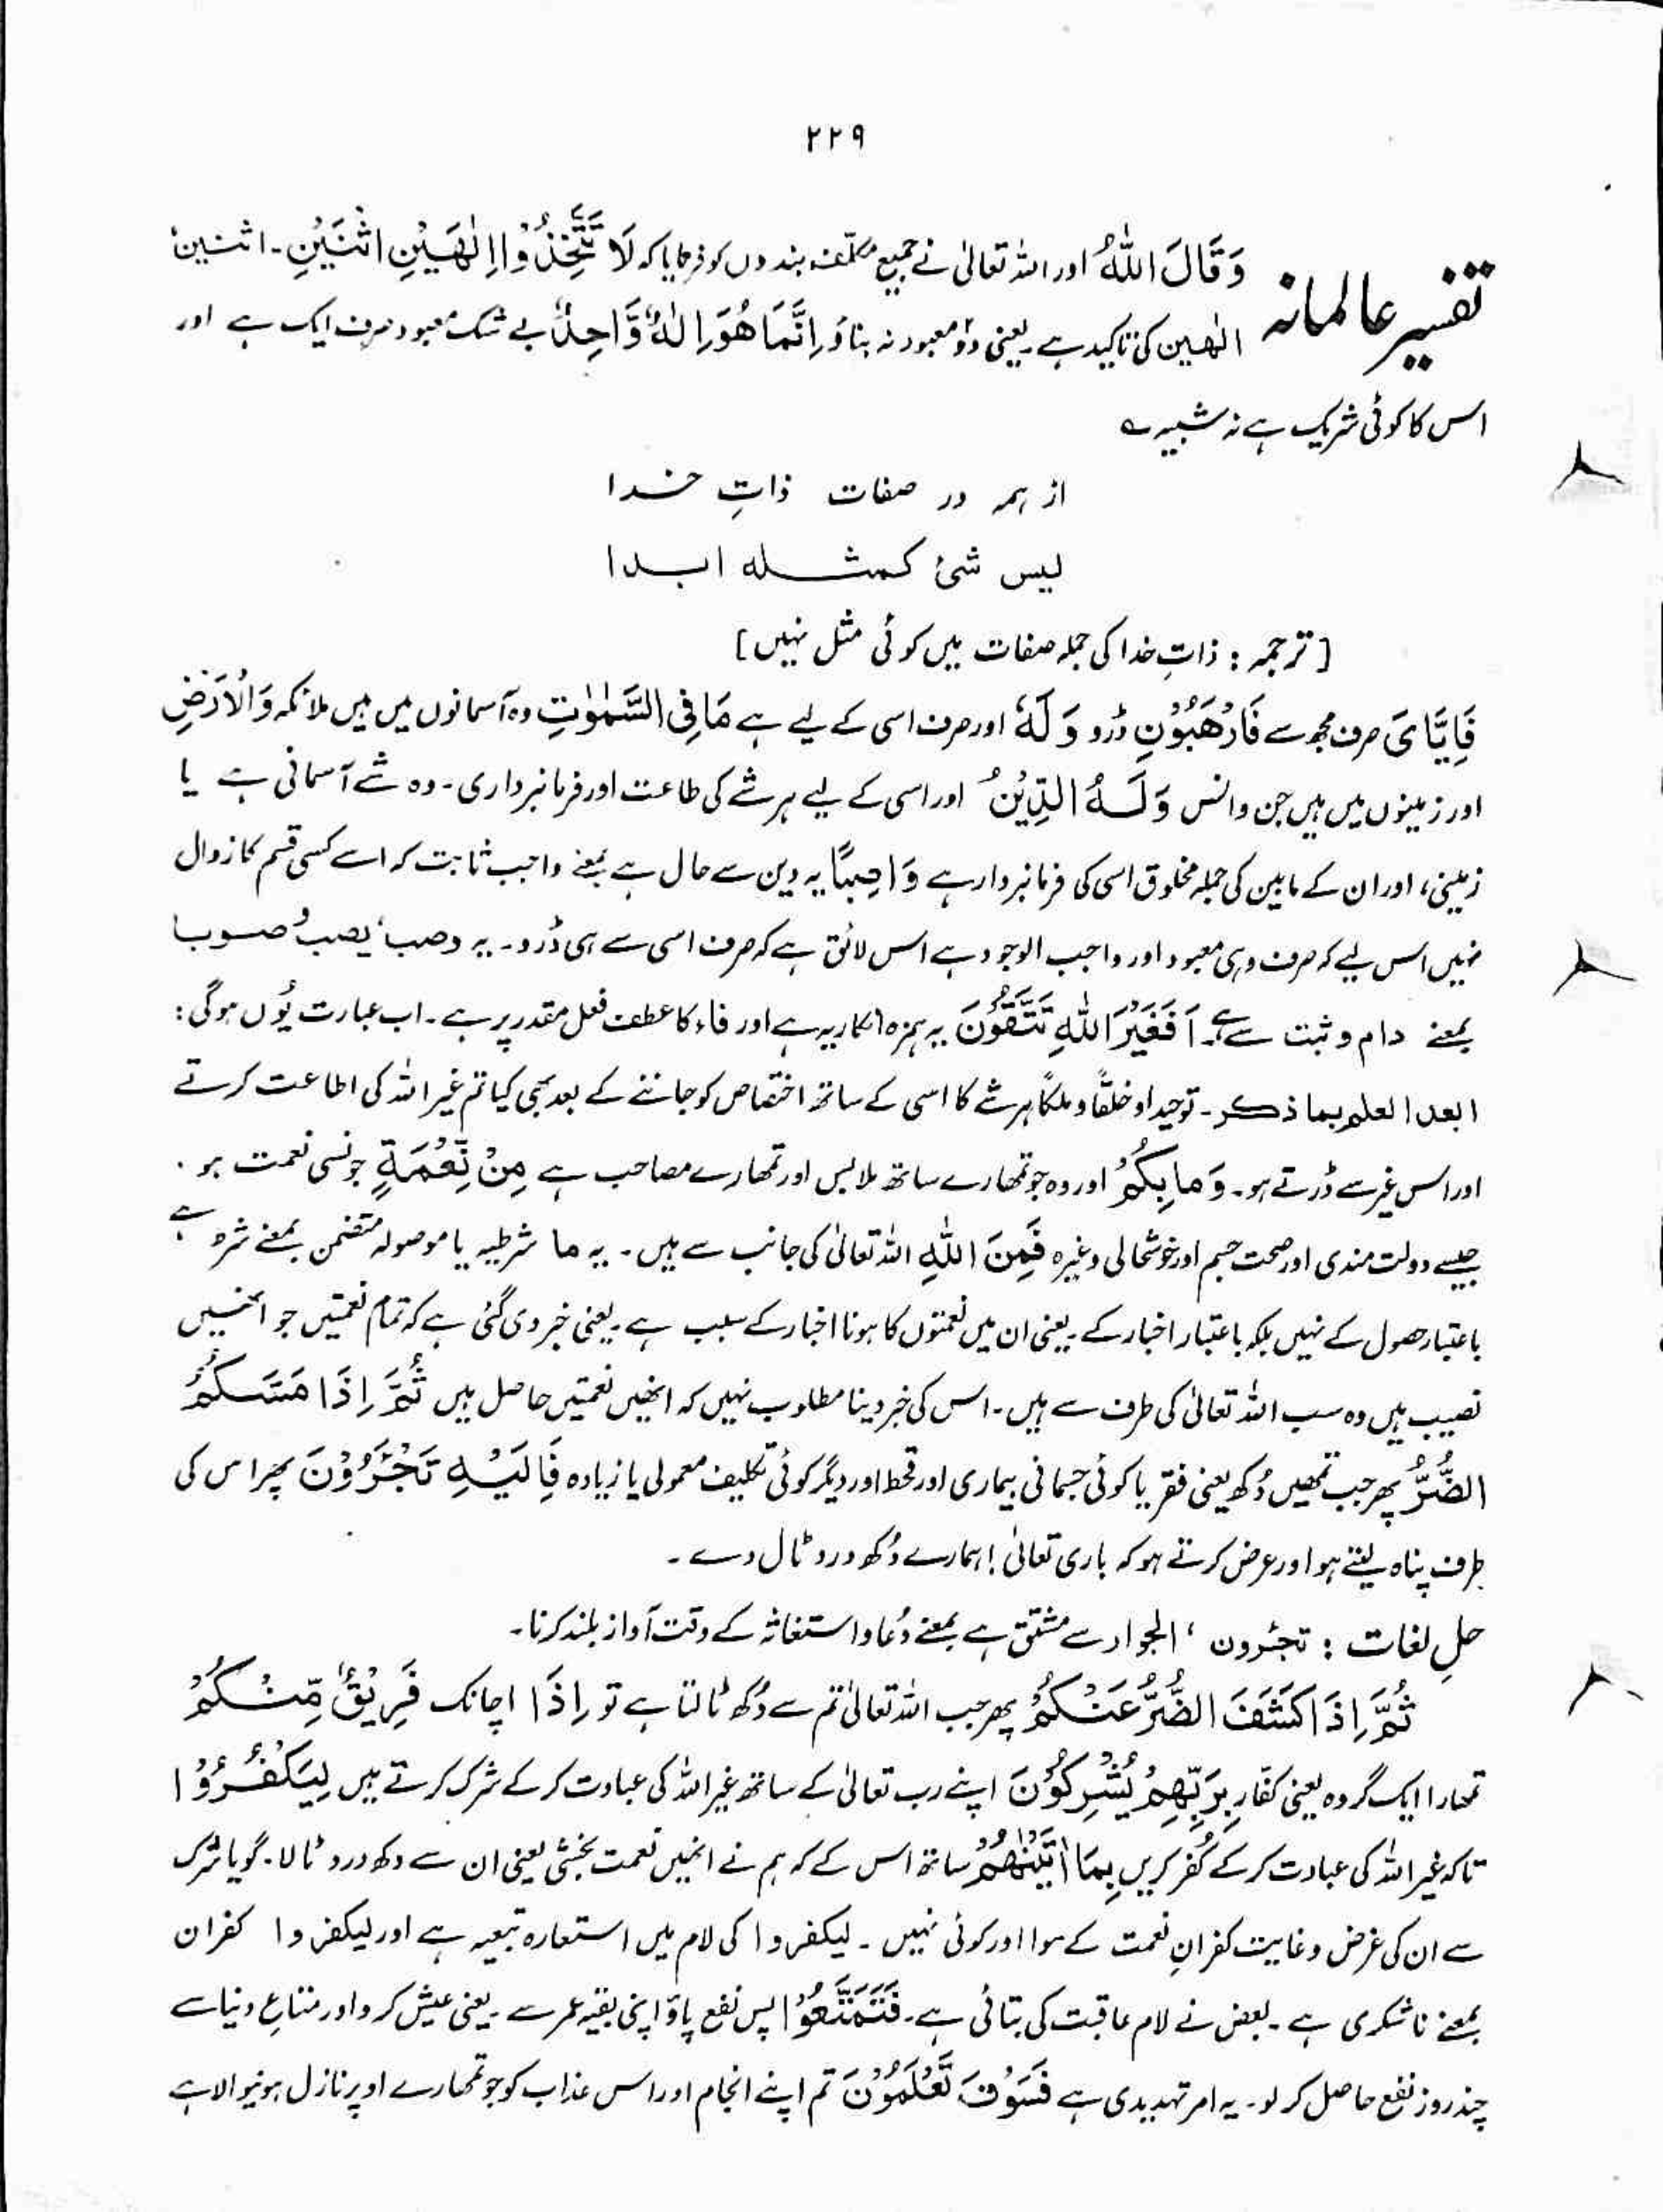 ۲۲۹
تفسیر عالمانہ
وَقَالَ اللّٰهُ اور اللہ تعالیٰ نے جمیع مکلّف بندوں کو فرمایا کہ لَا تَتَّخِذُوْۤا اِلٰهَيْنِ اثْنَيْنِ۔ اثنین
الٰهین کی تاکید ہے۔ یعنی دو معبود نہ بناؤ اِنَّمَا هُوَ اِلٰهٌ وَّاحِدٌ بے شک معبود صرف ایک ہے اور
اس کا کوئی شریک ہے نہ شبیہ ؎
از ہمہ در صفات ذاتِ خدا
لیس شئ کمثله ابدا
[ترجمہ : ذاتِ خدا کی جملہ صفات میں کوئی مثل نہیں]
فَاِيَّايَ صرف مجھ سے فَارْهَبُوْنِ ڈرو وَلَهٗ اور صرف اسی کے لیے ہے مَا فِي السَّمٰوٰتِ وہ آسمانوں میں ہیں ملائکہ وَالْاَرْضِ
اور زمینوں میں ہیں جن و انس وَلَهُ الدِّيْنُ اور اسی کے لیے ہر شے کی طاعت اور فرمانبرداری۔ وہ شے آسمانی ہے یا
زمینی، اور ان کے مابین کی جملہ مخلوق اسی کی فرمانبردار ہے وَاصِبًا یہ دین سے حال ہے بمعنے واجب ثابت کہ اسے کسی قسم کا زوال
نہیں اس لیے کہ صرف وہی معبود اور واجب الوجود ہے اس لائق ہے کہ صرف اسی سے ہی ڈرو۔ یہ وصب، یصب صوبا
بمعنے دام و ثبت سے ہے۔ اَفَغَيْرَ اللّٰهِ تَتَّقُوْنَ یہ ہمزہ انکاریہ ہے اور فاء کا عطف فعل مقدر پر ہے۔ اب عبارت یُوں ہوگی :
ابعد العلم بما ذکر۔ توحیدا و خلقًا و ملکًا ہر شے کا اسی کے ساتھ اختصاص کو جاننے کے بعد بھی کیا تم غیر اللہ کی اطاعت کرتے
اور اس غیر سے ڈرتے ہو۔ وَمَا بِكُمْ اور وہ جو تمھارے ساتھ ملابس اور تمھارے مصاحب ہے مِنْ نِّعْمَةٍ جونسی نعمت ہو۔
جیسے دولت مندی اور صحت جسم اور خوشحالی وغیرہ فَمِنَ اللّٰهِ اللہ تعالیٰ کی جانب سے ہیں۔ یہ ما شرطیہ یا موصولہ متضمن بمعنے شرط ہے
باعتبار حصول کے نہیں بلکہ باعتبار اخبار کے۔ یعنی ان میں نعمتوں کا ہونا اخبار کے سبب ہے۔ یعنی خبر دی گئی ہے کہ تمام نعمتیں جو انھیں
نصیب ہیں وہ سب اللہ تعالیٰ کی طرف سے ہیں۔ اس کی خبر دینا مطلوب نہیں کہ انھیں نعمتیں حاصل ہیں ثُمَّ اِذَا مَسَّكُمُ
الضُّرُّ پھر جب تمھیں دُکھ یعنی فقر یا کوئی جسمانی بیماری اور قحط اور دیگر کوئی تکلیف معمولی یا زیادہ فَاِلَيْهِ تَجْـَٔرُوْنَ پھر اس کی
طرف پناہ لیتے ہو اور عرض کرتے ہو کہ باری تعالیٰ! ہمارے دُکھ درد ٹال دے۔
حلِ لغات : تجئرون ، الجوار سے مشتق ہے بمعنے دُعا و استغاثہ کے وقت آواز بلند کرنا۔
ثُمَّ اِذَا كَشَفَ الضُّرَّ عَنْكُمْ پھر جب اللہ تعالیٰ تم سے دُکھ ٹالتا ہے تو اِذَا اچانک فَرِيْقٌ مِّنْكُمْ
تمھارا ایک گروہ یعنی کفّار بِرَبِّهِمْ يُشْرِكُوْنَ اپنے رب تعالیٰ کے ساتھ غیر اللہ کی عبادت کر کے شرک کرتے ہیں لِيَكْفُرُوْا
تاکہ غیر اللہ کی عبادت کر کے کُفر کریں بِمَاۤ اٰتَيْنٰهُمْ ساتھ اس کے کہ ہم نے انھیں نعمت بخشی یعنی ان سے دکھ درد ٹالا۔ گویا شرک
سے ان کی غرض و غایت کفرانِ نعمت کے سوا اور کوئی نہیں۔ لیکفروا کی لام میں استعارہ تبعیہ ہے اور لیکفروا کفران
بمعنے ناشکری ہے۔ بعض نے لام عاقبت کی بتائی ہے۔ فَتَمَتَّعُوْا پس نفع پاؤ اپنی بقیہ عمر سے۔ یعنی عیش کرو اور متاعِ دنیا سے
چند روز نفع حاصل کر لو۔ یہ امر تہدیدی ہے فَسَوْفَ تَعْلَمُوْنَ تم اپنے انجام اور اس عذاب کو جو تمھارے اوپر نازل ہونیوالا ہے